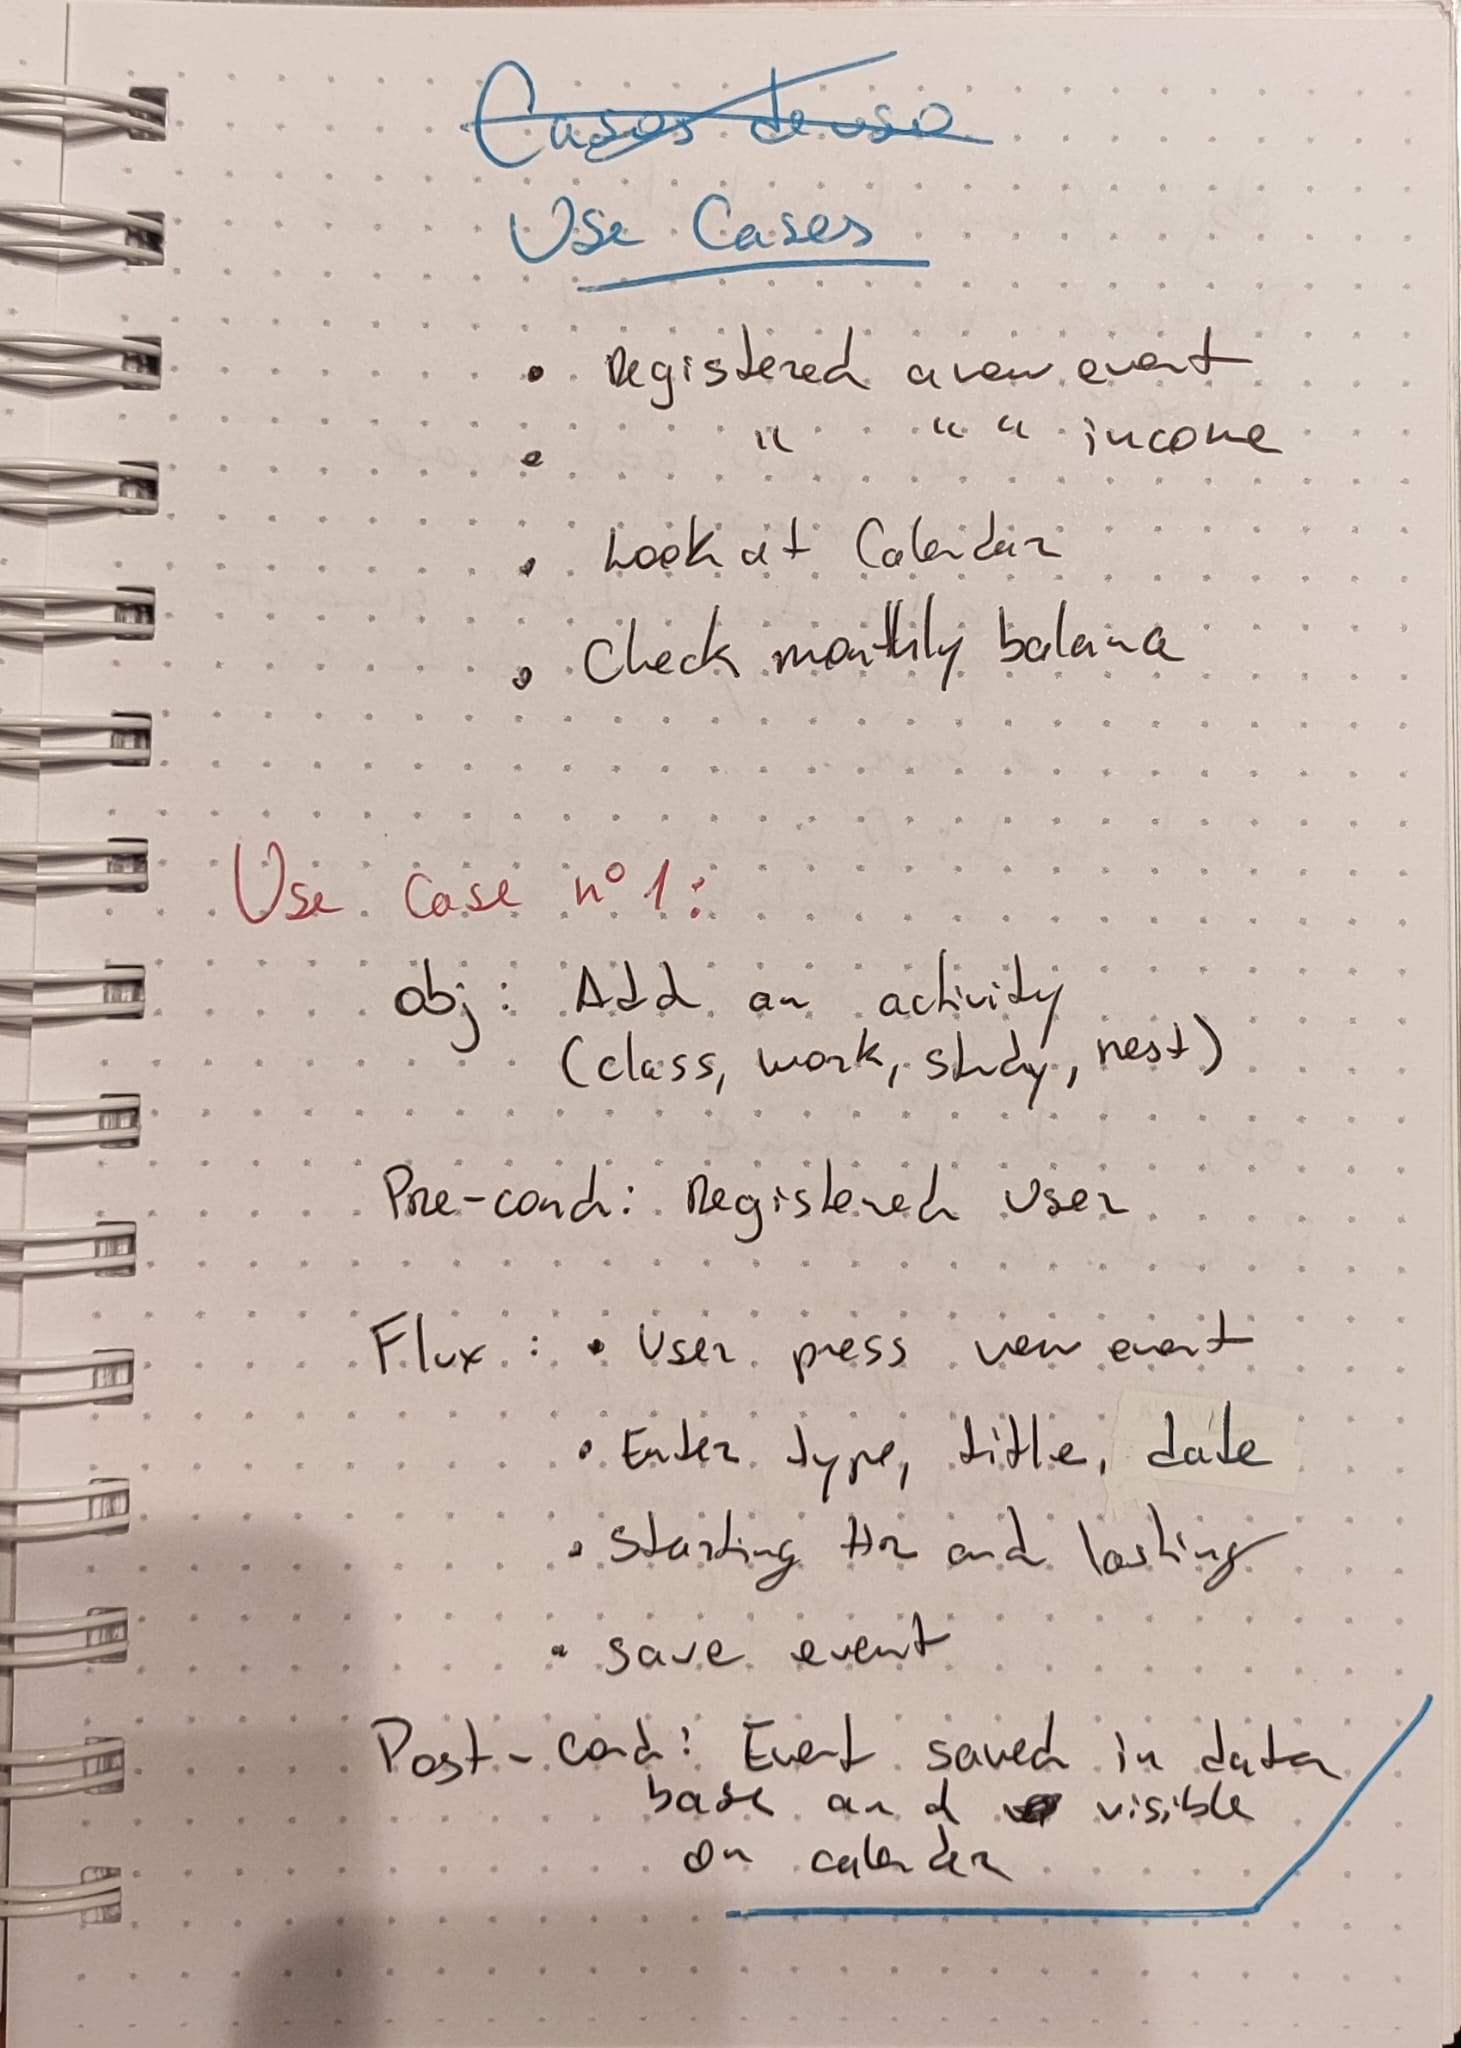 Casos de uso
Use Cases
• Registered a new event
• " " " income
• Look at Calendar
• Check monthly balance
Use Case nº 1:
obj: Add an activity
(class, work, study, rest)
Pre-cond: Registered user
Flux: • User press new event
• Enter type, title, date
• Starting Hr and lasting
• save event
Post-cond: Event saved in data
base and visible
on calendar